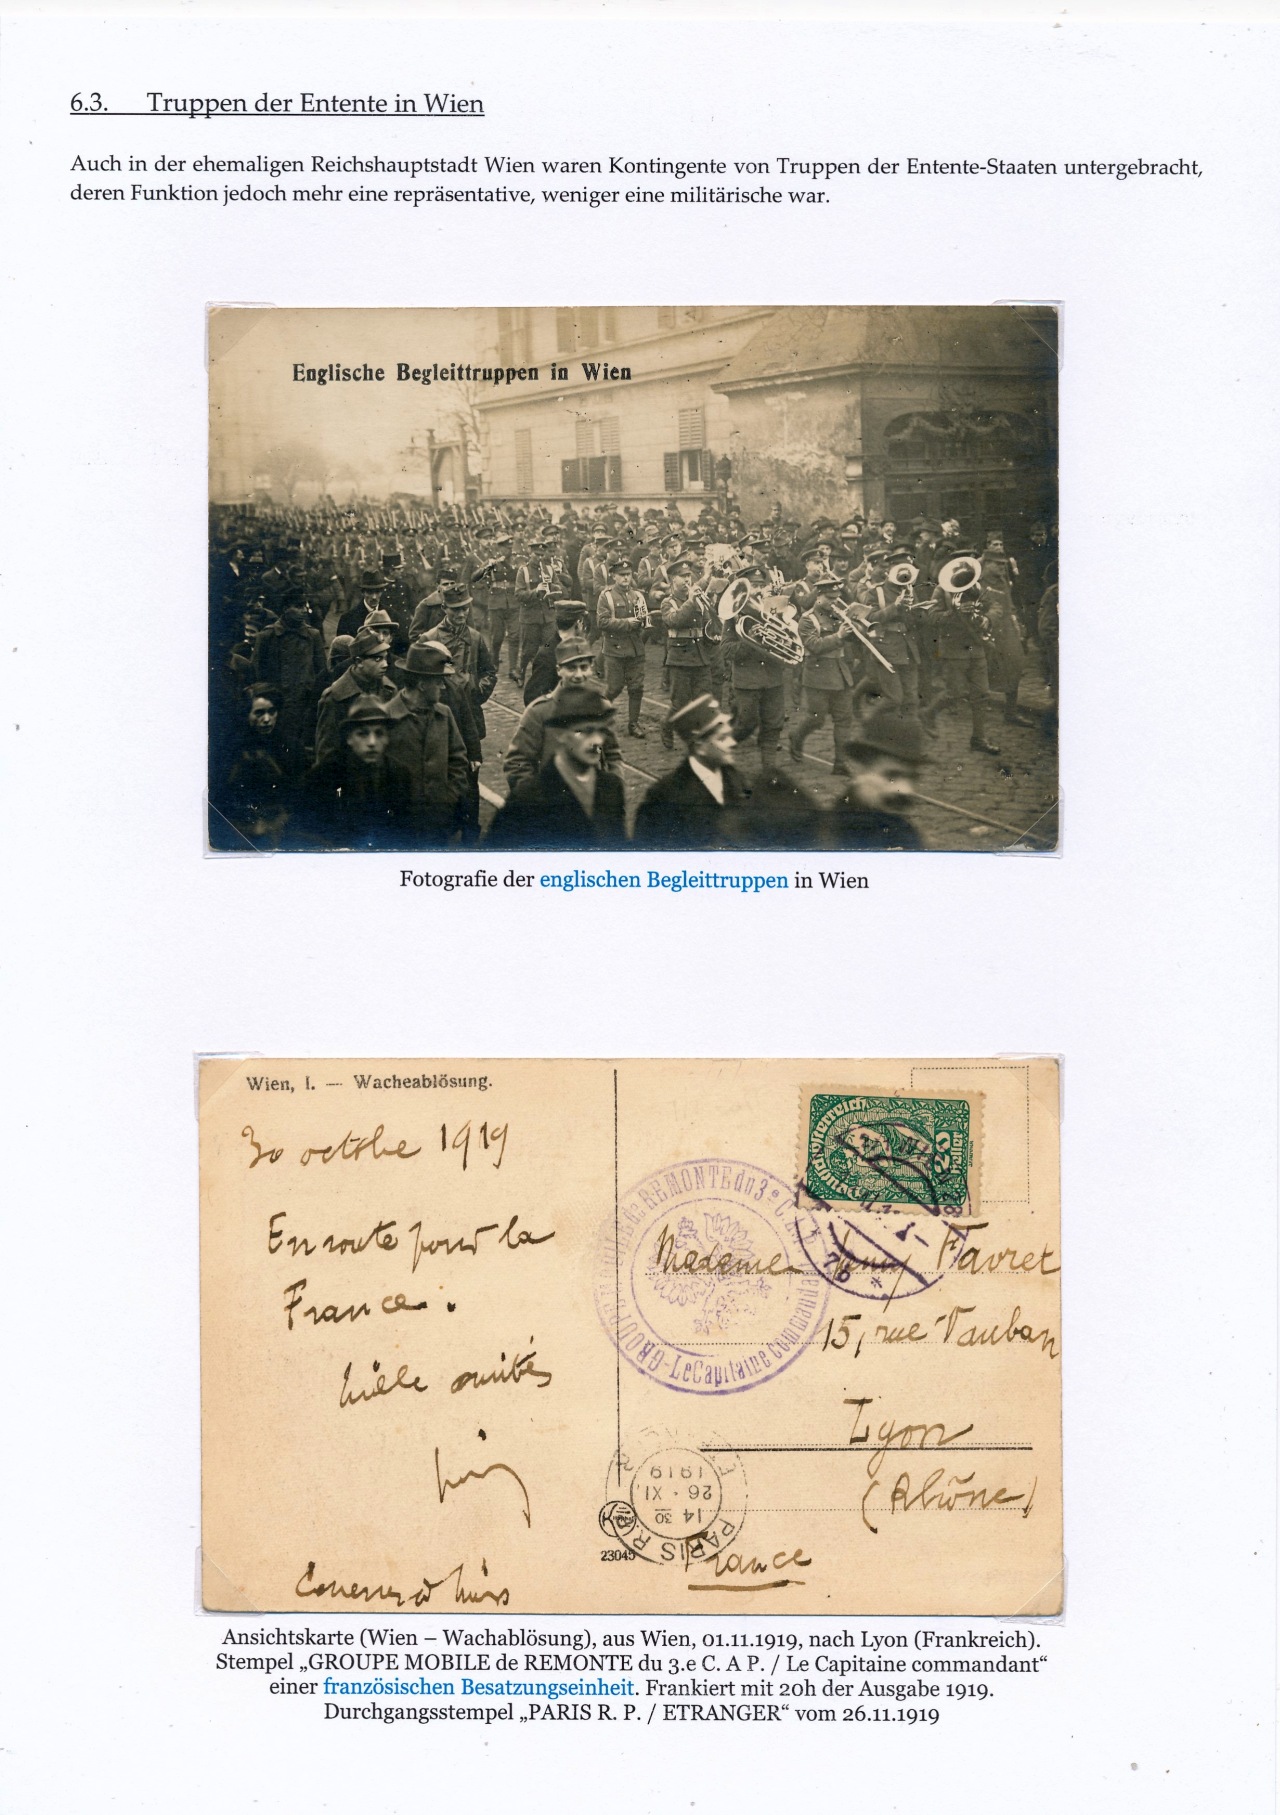 6.3. Truppen der Entente in Wien
Auch in der ehemaligen Reichshauptstadt Wien waren Kontingente von Truppen der Entente-Staaten untergebracht,
deren Funktion jedoch mehr eine repräsentative, weniger eine militärische war.
Englische Begleittruppen in Wien
Fotografie der englischen Begleittruppen in Wien
Wien, I. — Wacheablösung.
30 octobre 1919
En route pour la
France.
Mille amitiés
GROUPE MOBILE de REMONTE du 3e C.A.P. - Le Capitaine Commandant
Deutschösterreich
20 Heller
76
Madame Favret
15, rue Vauban
Lyon
(Rhône)
France
PARIS R.P.
14 30
26 · XI
1919
23045
Ansichtskarte (Wien – Wachablösung), aus Wien, 01.11.1919, nach Lyon (Frankreich).
Stempel „GROUPE MOBILE de REMONTE du 3.e C. A P. / Le Capitaine commandant“
einer französischen Besatzungseinheit. Frankiert mit 20h der Ausgabe 1919.
Durchgangsstempel „PARIS R. P. / ETRANGER“ vom 26.11.1919